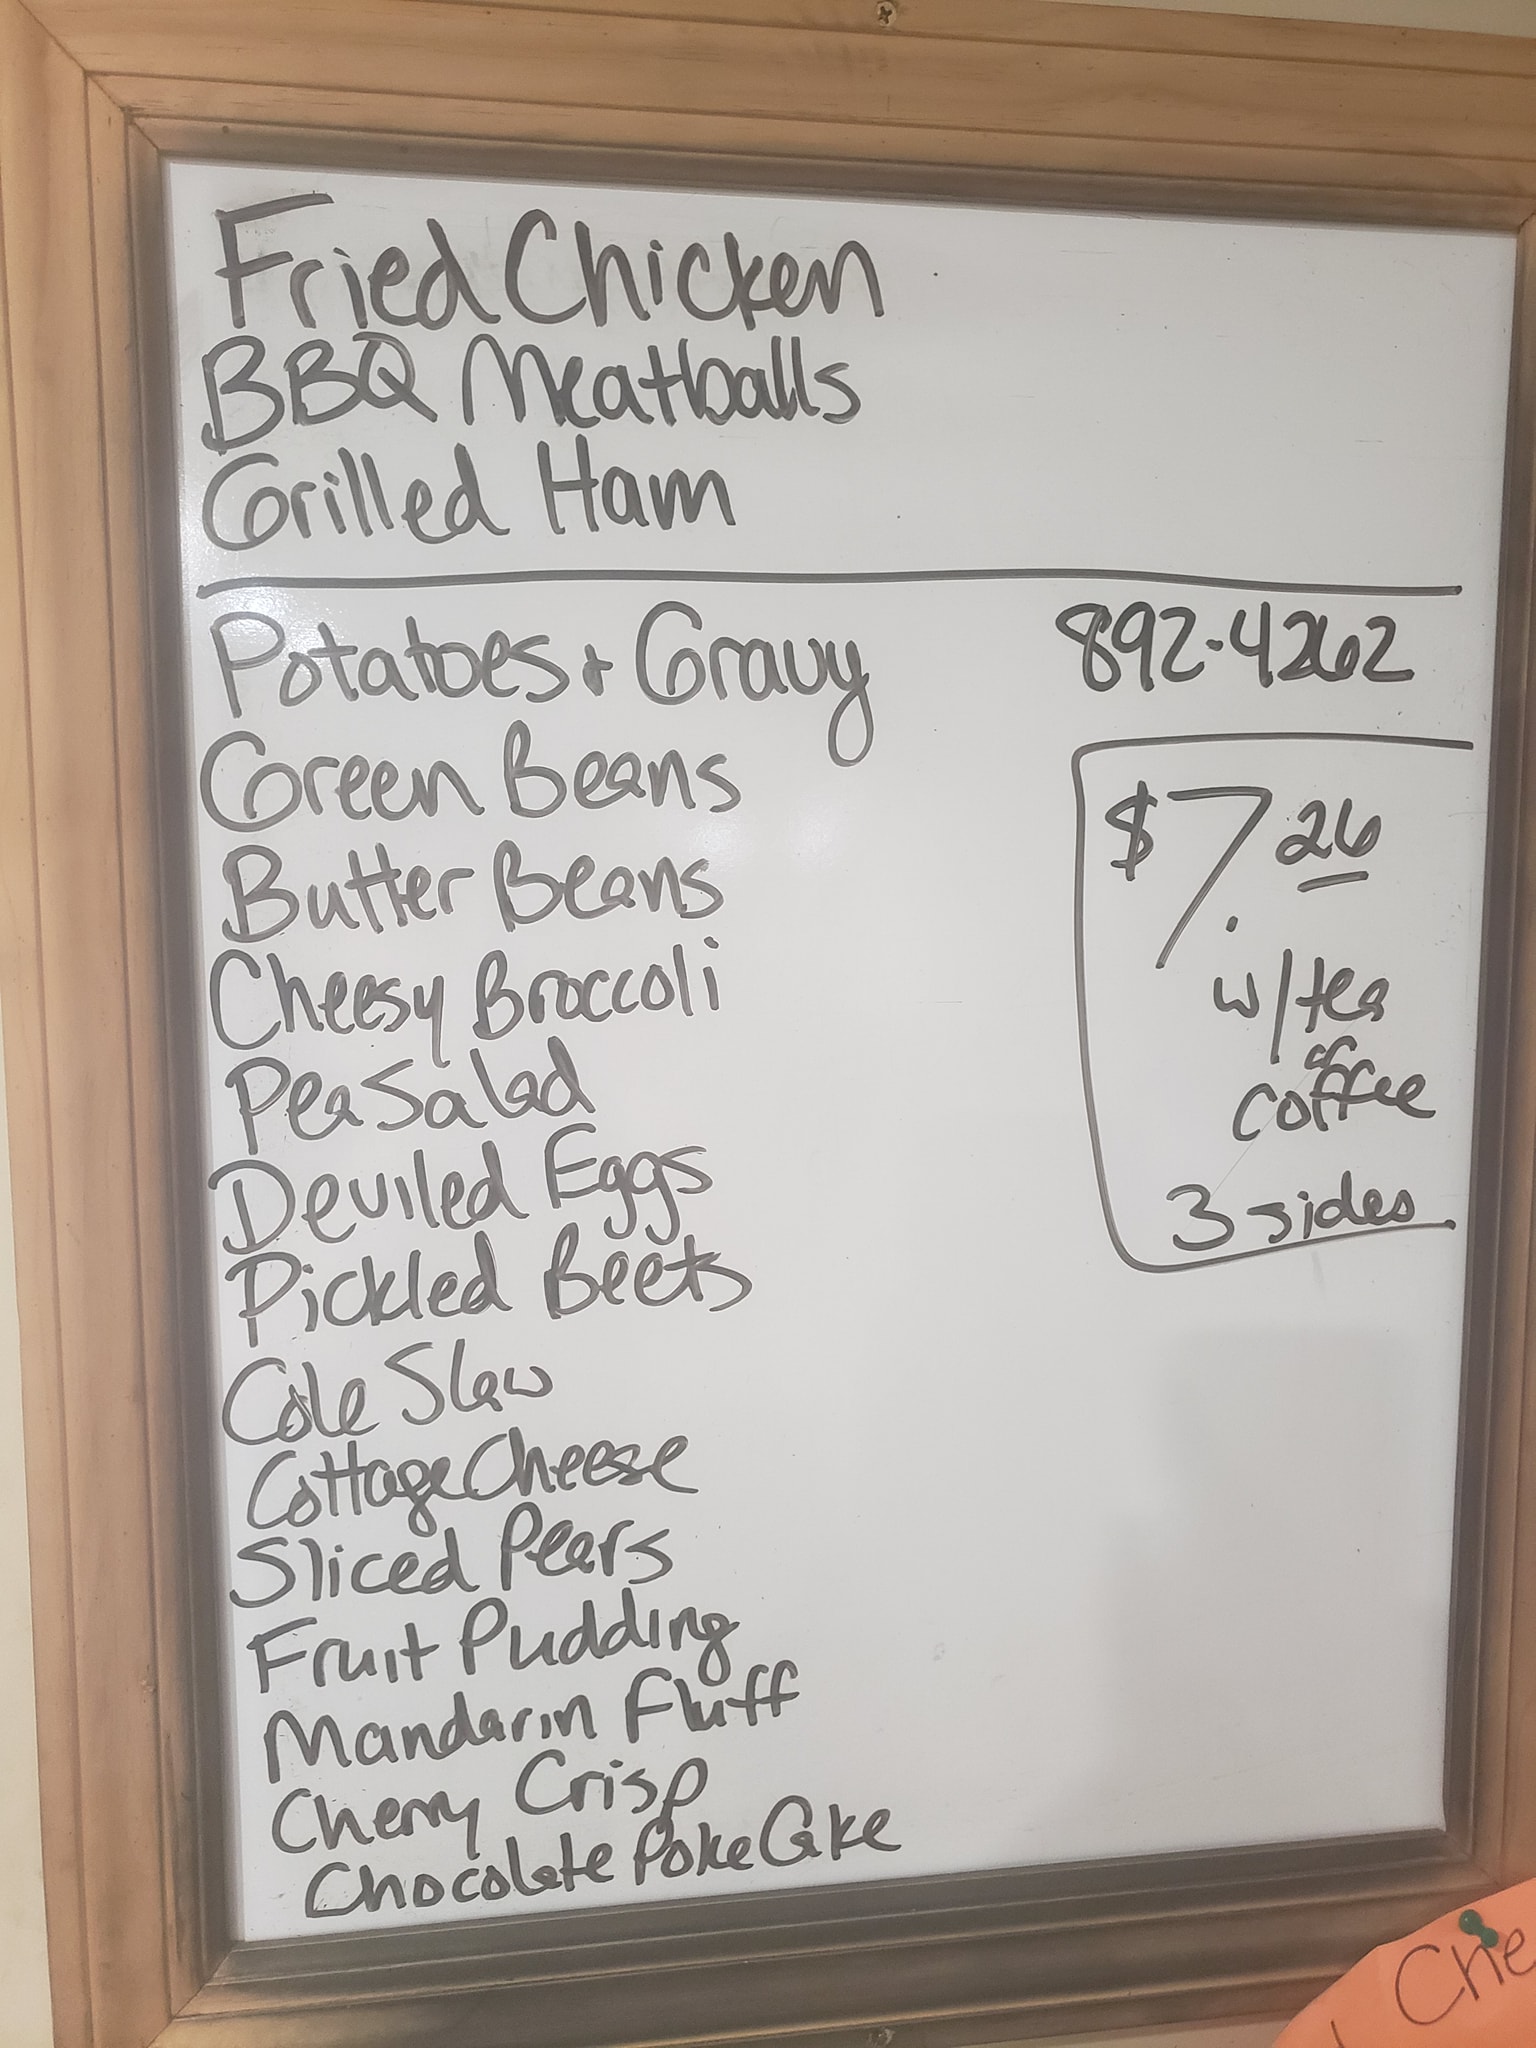 Fried Chicken
BBQ Meatballs
Grilled Ham
Potatoes + Gravy
Green Beans
Butter Beans
Cheesy Broccoli
Pea Salad
Deviled Eggs
Pickled Beets
Cole Slaw
Cottage Cheese
Sliced Pears
Fruit Pudding
Mandarin Fluff
Cherry Crisp
Chocolate Poke Cake
892-4262
$7.26
w/tea
or
coffee
3 sides
Che